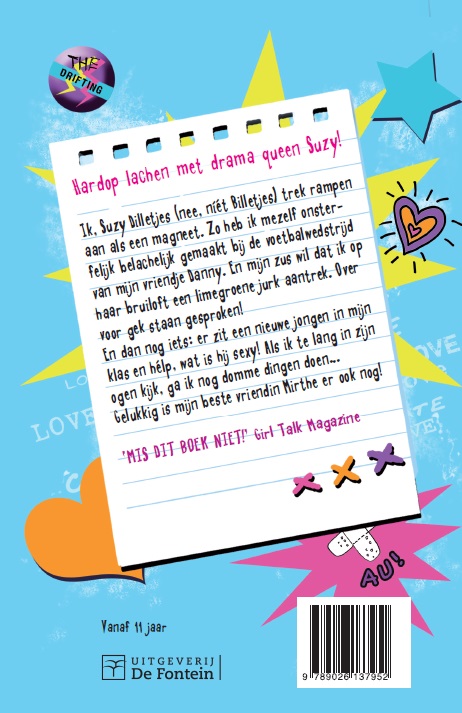 THE
DRIFTING
Hardop lachen met drama queen Suzy!
Ik, Suzy Dilletjes (nee, níét Billetjes) trek rampen
aan als een magneet. Zo heb ik mezelf onster-
felijk belachelijk gemaakt bij de voetbalwedstrijd
van mijn vriendje Danny. En mijn zus wil dat ik op
haar bruiloft een limegroene jurk aantrek. Over
voor gek staan gesproken!
En dan nog iets: er zit een nieuwe jongen in mijn
klas en hélp, wat is hij sexy! Als ik te lang in zijn
ogen kijk, ga ik nog domme dingen doen...
Gelukkig is mijn beste vriendin Mirthe er ook nog!
'MIS DIT BOEK NIET!' Girl Talk Magazine
LOVE
LOVE
AU!
Vanaf 11 jaar
UITGEVERIJ
De Fontein
9 789026 137952